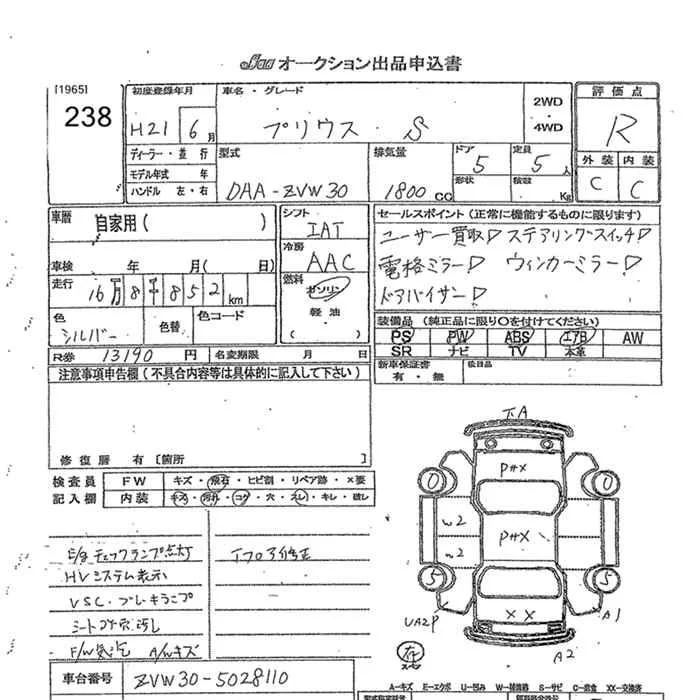 JAA オークション出品申込書
[1965]
238
初度登録年月
H21 6月
車名・グレード
プリウス・S
2WD
4WD
評価点
R
外装 内装
C C
ディーラー・並行
モデル年式 年
ハンドル 左・右
型式
DAA-ZVW30
排気量
1800 CC
ドア 5
形状
定員 5人
積載 Kg
車歴 自家用( )
車検 年 月( 日)
走行 16万8千852km
色 シルバー
色替
色コード
シフト
IAT
冷房
AAC
燃料
ガソリン
軽油
( )
セールスポイント(正常に機能するものに限ります)
ユーザー買取 ステアリングスイッチ
電格ミラー ウィンカーミラー
ドアバイザー
装備品(純正品に限り〇を付けてください)
PS PW ABS エアB AW
SR ナビ TV 本革
R券 13190円 名変期限 月 日
新車保証書
有・無
後日品
注意事項申告欄(不具合内容等は具体的に記入して下さい)
修復歴 有[箇所 ]
検査員
記入欄
FW キズ・飛石・ヒビ割・リペア跡・×要
内装 キズ・汚れ・コゲ・穴・スレ・キレ・破レ
E/gチェックランプ点灯
HVシステム表示
VSC・ブレーキランプ
F/W飛石 A/Wキズ
車台番号 ZVW30-5028110
下A
P#X
0 0
W2
P#X
W2
5 5
UA2P
XX
A1
A2
A-キズ E-エクボ U-凹み W-補修跡 S-サビ C-腐食 XX-交換済